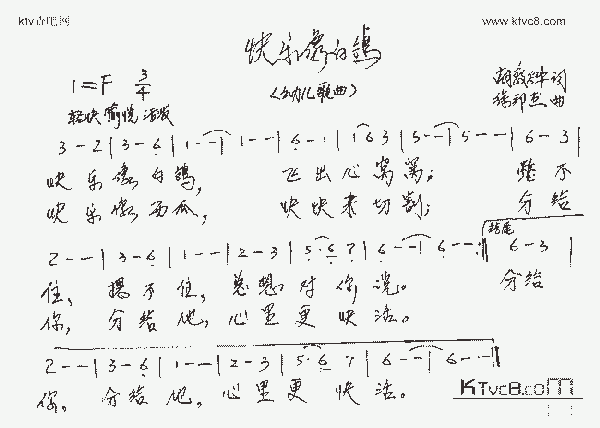 ktv吉吧网 www.ktvc8.com
快乐像白鸽
(幼儿歌曲)
1=F 3/4
词
轻快 愉悦 活泼
徐邦杰 曲
3 - 2 | 3 - 6 | 1 - - | 1 - - | 6 - 1 | 1 6 3 | 5 - - | 5 - - | 6 - 3 |
快 乐 像 白 鸽, 飞 出 心 窝 窝; 关 不
快 乐 像 西 瓜, 快 快 来 切 割; 分 给
结尾
2 - - | 3 - 6 | 1 - - | 2 - 3 | 5 · 6 7 | 6 - - | 6 - - :‖ 6 - 3 |
住, 不 住, 总 想 对 你 说。 分给
你, 分 给 他, 心 里 更 快 活。
2 - - | 3 - 6 | 1 - - | 2 - 3 | 5 · 6 7 | 6 - - | 6 - - :‖
你, 分 给 他, 心 里 更 快 活。
KTvc8.com